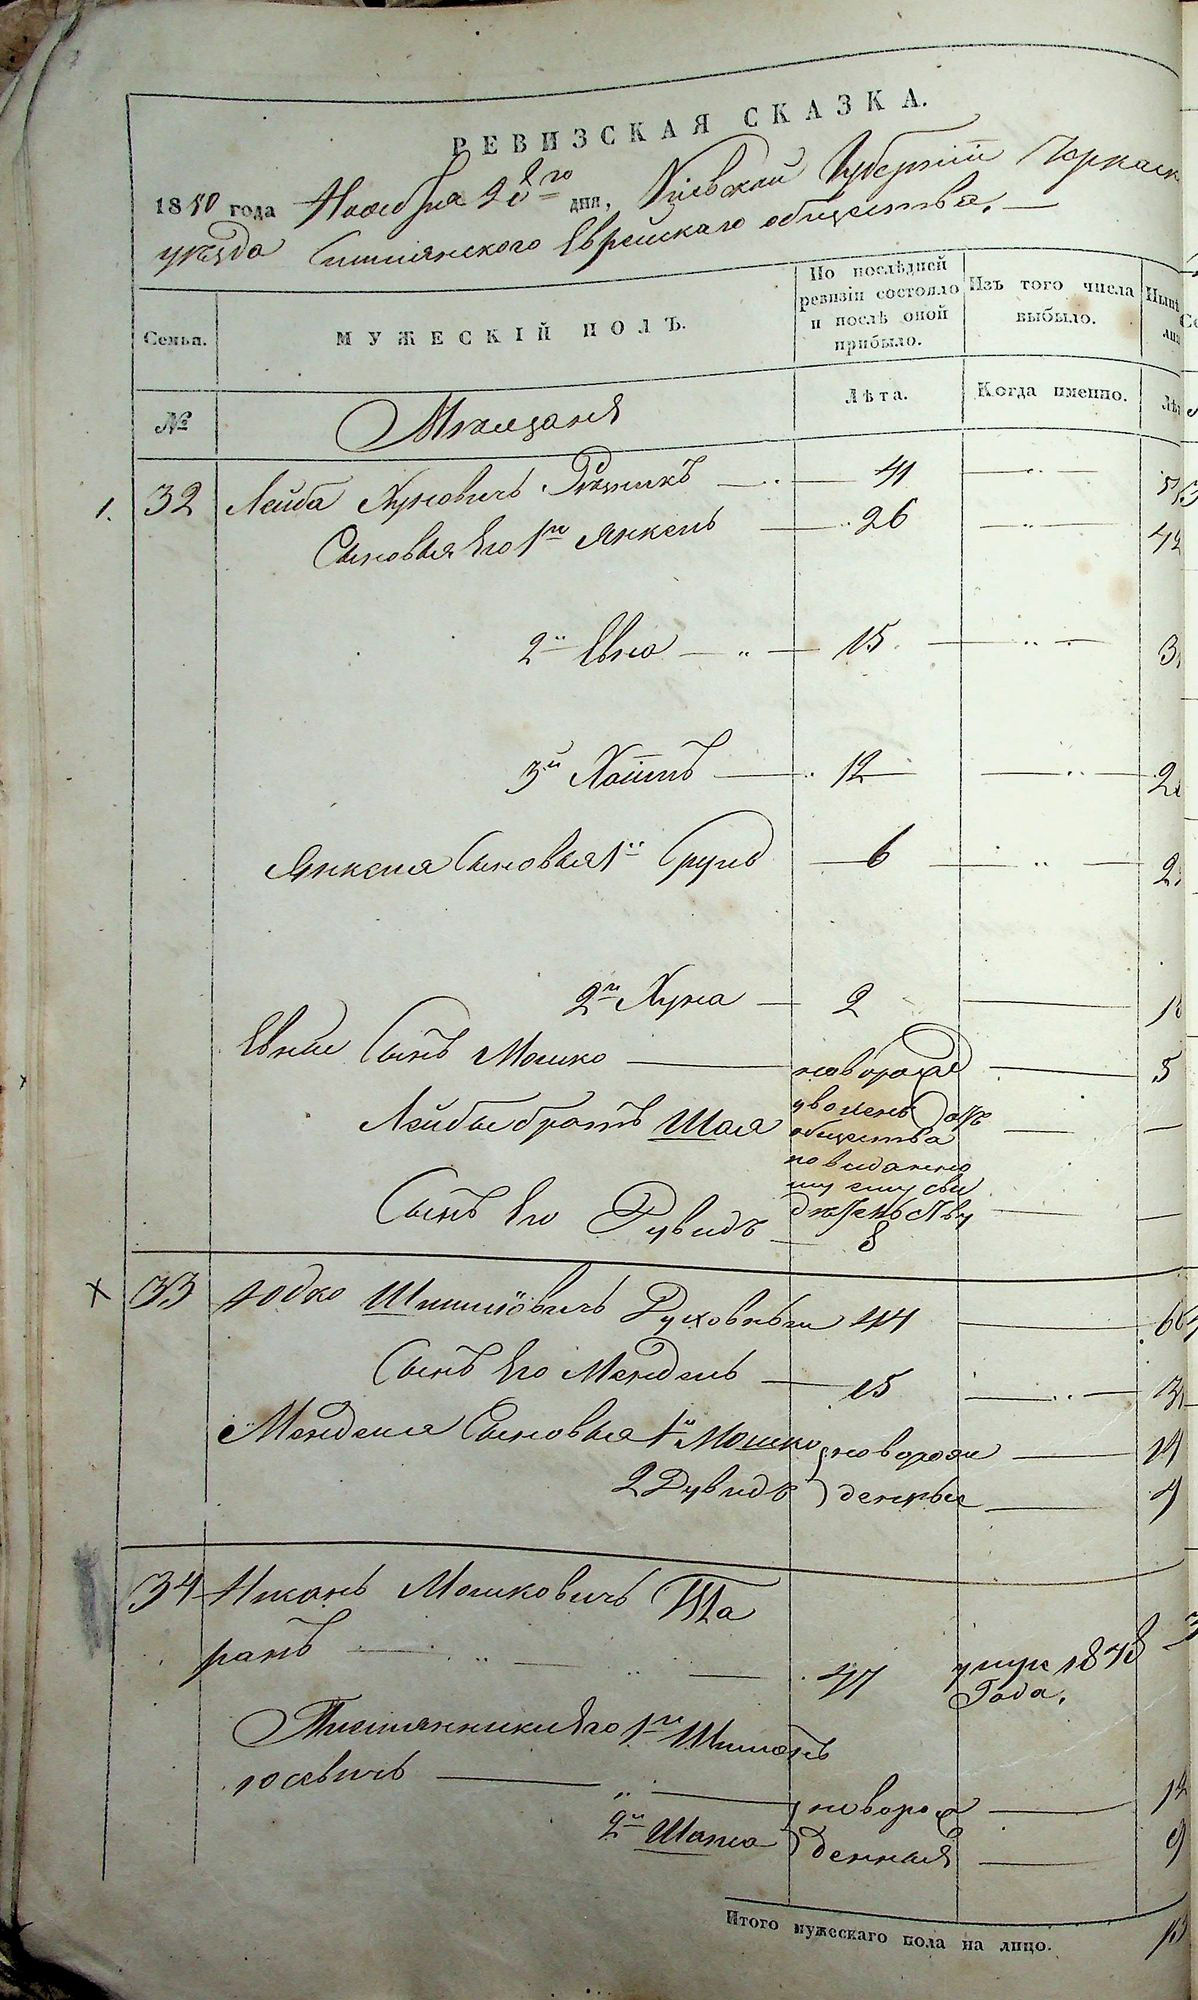 РЕВИЗСКАЯ СКАЗКА.
1850 года Ноября 28го дня, Кіевской Губерніи Черкаск
уѣзда Смилянского Еврейскаго общества.
Семья.
МУЖЕСКІЙ ПОЛЪ.
По послѣдней
ревизіи состояло
и послѣ оной
прибыло.
Изъ того числа
выбыло.
№
Мѣщаня
Лѣта.
Когда именно.
1. 32 Лейба Хуновичъ 41
Сыновья Его 1й Янкель 26
2й Евна 15 3
3й Хаимъ 12 2
Янкеля Сыновья 1й Сруль 6 2
2й Хуна 2 1
Евны Сынъ Мошко новорожд 5
Лейбы братъ Шая уволенъ отъ
общества
по виданно
му ему сви
дѣтельству
Сынъ Его Дувидъ 8
33 Юдко Шимоновичъ 44
Сынъ Его Мендель 15 3
Менделя Сыновья 1й Мошко новорож 14
2 Дувидъ денные 4
34 Мошковичъ Ша
ранъ 47 умре 1848
Года.
Племянники Его 1й Шимонъ
Іосевичъ новорож 12
2й денная 9
Итого мужескаго пола на лицо.